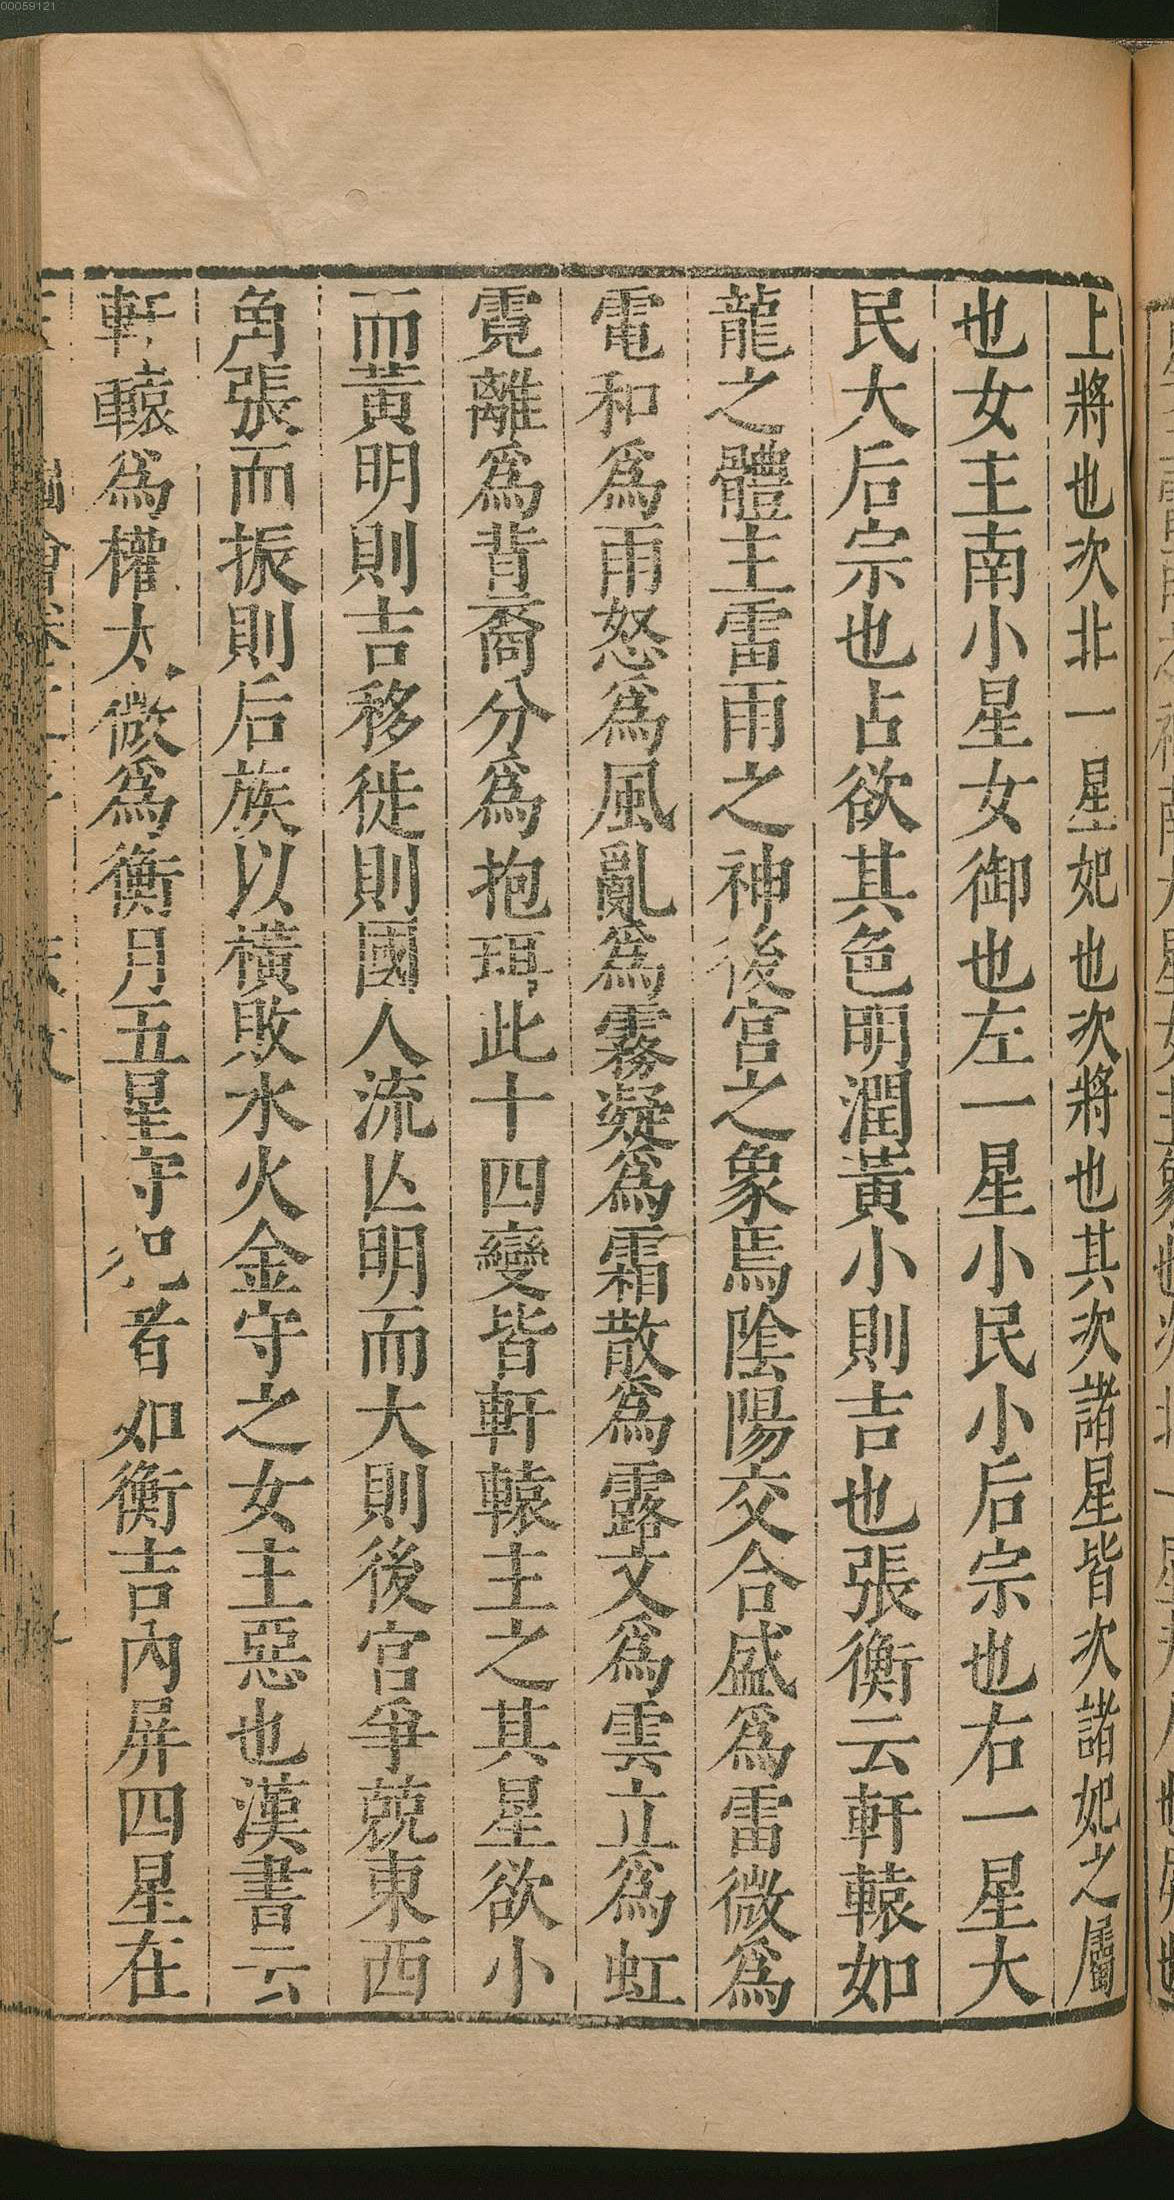 上將也次北一星妃也次將也其次諸星皆次諸妃之屬
也女主南小星女御也左一星小民小后宗也右一星大
民大后宗也占欲其色明潤黃小則吉也張衡云軒轅如
龍之體主雷雨之神後宮之象焉陰陽交合盛為雷微為
電和為雨怒為風亂為霧凝為霜散為露文為雲立為虹
霓離為背裔分為抱珥此十四變皆軒轅主之其星欲小
而黃明則吉移徙則國人流亾明而大則後宮爭兢東西
角張而振則后族以橫敗水火金守之女主惡也漢書云
軒轅為權太微為衡月五星守犯者如衡吉內屏四星在
00059121